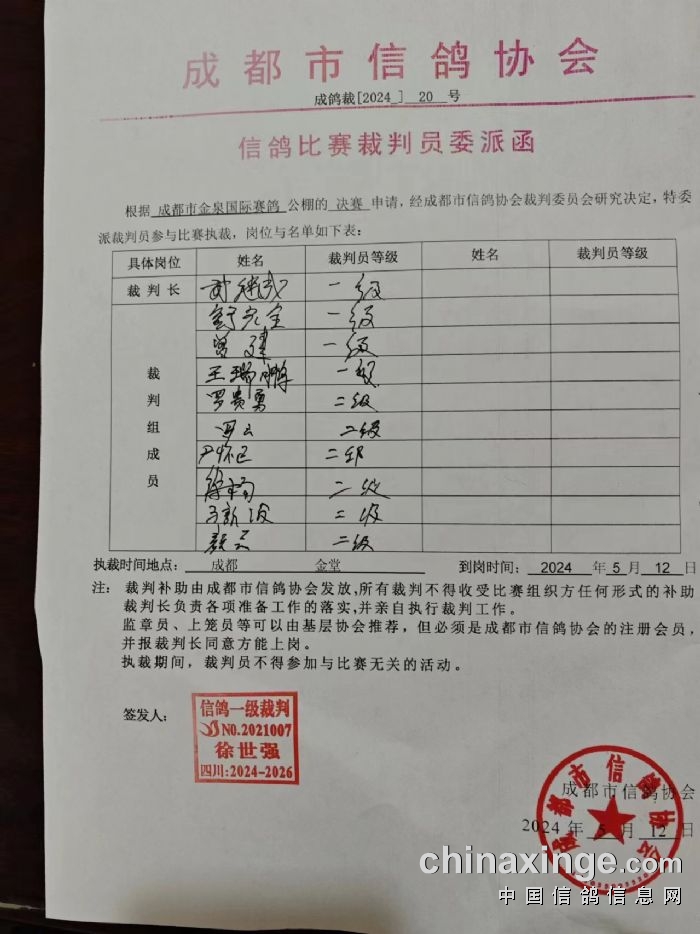 成都市信鸽协会
成鸽裁[2024 ] 20 号
信鸽比赛裁判员委派函
根据 成都市金泉国际赛鸽 公棚的 决赛 申请，经成都市信鸽协会裁判委员会研究决定，特委
派裁判员参与比赛执裁，岗位与名单如下表：
具体岗位 姓名 裁判员等级 姓名 裁判员等级
裁判长 一级
一级
曾建 一级
裁判组成员
王瑞鹏 一级
罗贵勇 二级
二级
二级
二级
二级
二级
执裁时间地点： 成都 金堂 到岗时间： 2024 年 5 月 12 日
注： 裁判补助由成都市信鸽协会发放，所有裁判不得收受比赛组织方任何形式的补助
裁判长负责各项准备工作的落实，并亲自执行裁判工作。
监章员、上笼员等可以由基层协会推荐，但必须是成都市信鸽协会的注册会员，
并报裁判长同意方能上岗。
执裁期间，裁判员不得参加与比赛无关的活动。
签发人：
信鸽一级裁判
NO.2021007
徐世强
四川：2024-2026
成都市信鸽协会
2024 年 5 月 12 日
成都市信鸽协会
chinaxinge.com
中国信鸽信息网